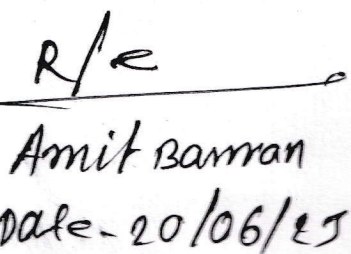 R/e
Amit Barman
Date- 20/06/25